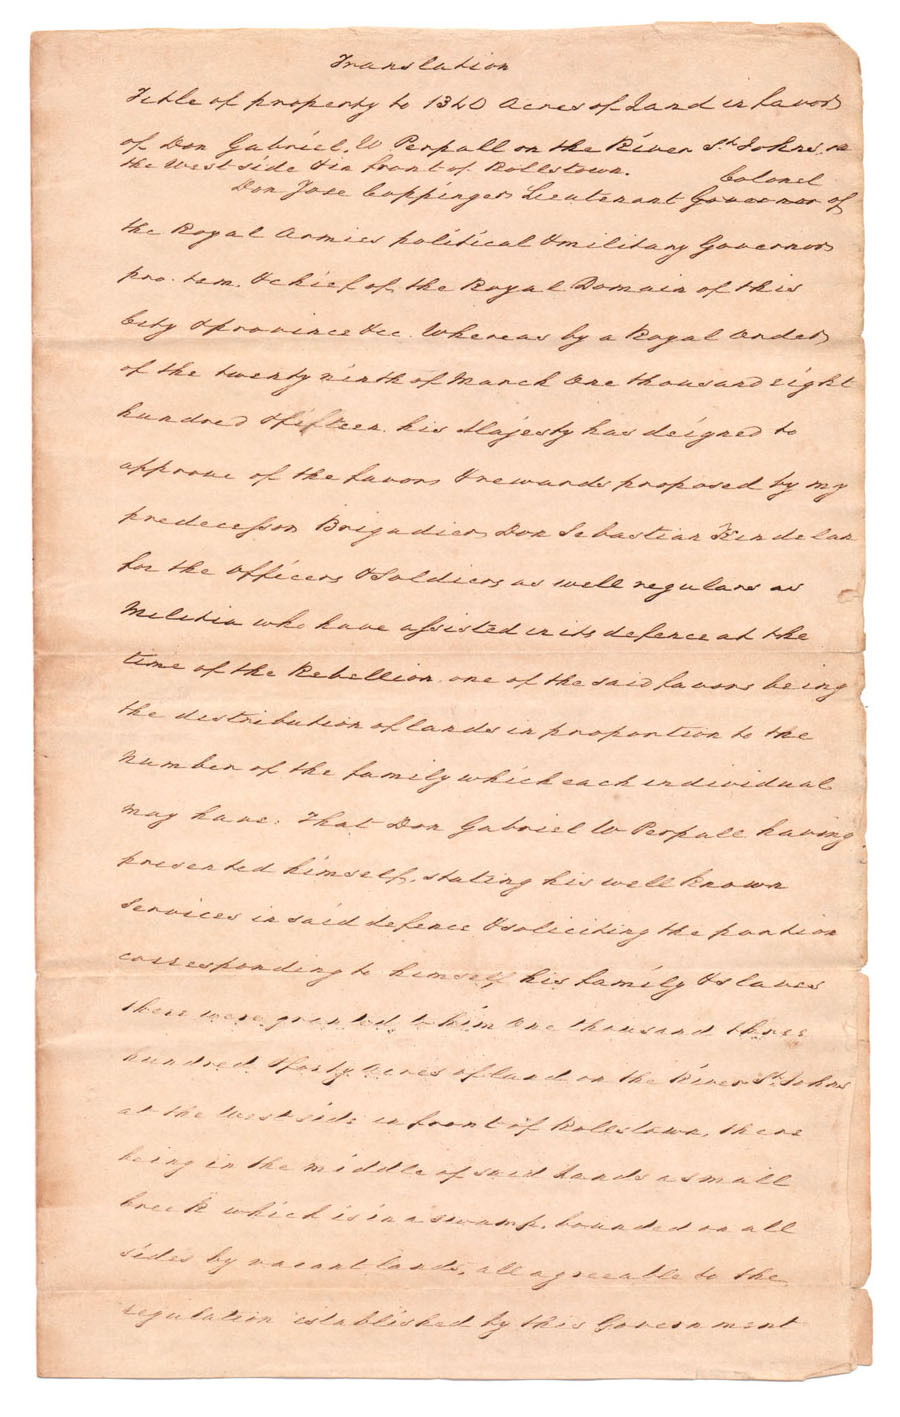 Translation
Title of property to 1340 Acres of Land in favor
of Don Gabriel. W Perpall on the River St. Johns. on
the West side & in front of Rollstown.
Colonel
Don Jose Coppinger Lieutenant Governor of
the Royal Armies political & military Governor
pro. tem. & chief of the Royal Domain of this
City & province &c. Whereas by a Royal Order
of the twenty ninth of March One thousand eight
hundred & fifteen. his Majesty has deigned to
approve of the favors & rewards proposed by my
predecessor Brigadier Don Sebastian Kindelan
for the Officers & Soldiers as well regulars as
Militia who have assisted in its defence at the
time of the Rebellion. one of the said favors being
the distribution of lands in proportion to the
Number of the family which each individual
may have: That Don Gabriel W Perpall having
presented himself, stating his well known
Services in said defence & soliciting the portion
corresponding to himself his family & slaves
there were granted to him One thousand three
hundred & forty Acres of land on the River St. Johns
at the West side in front of Rollstown, there
being in the middle of said lands a small
kreek which is in a swamp. bounded on all
sides by vacant lands, all agreeable to the
regulation established by this Government